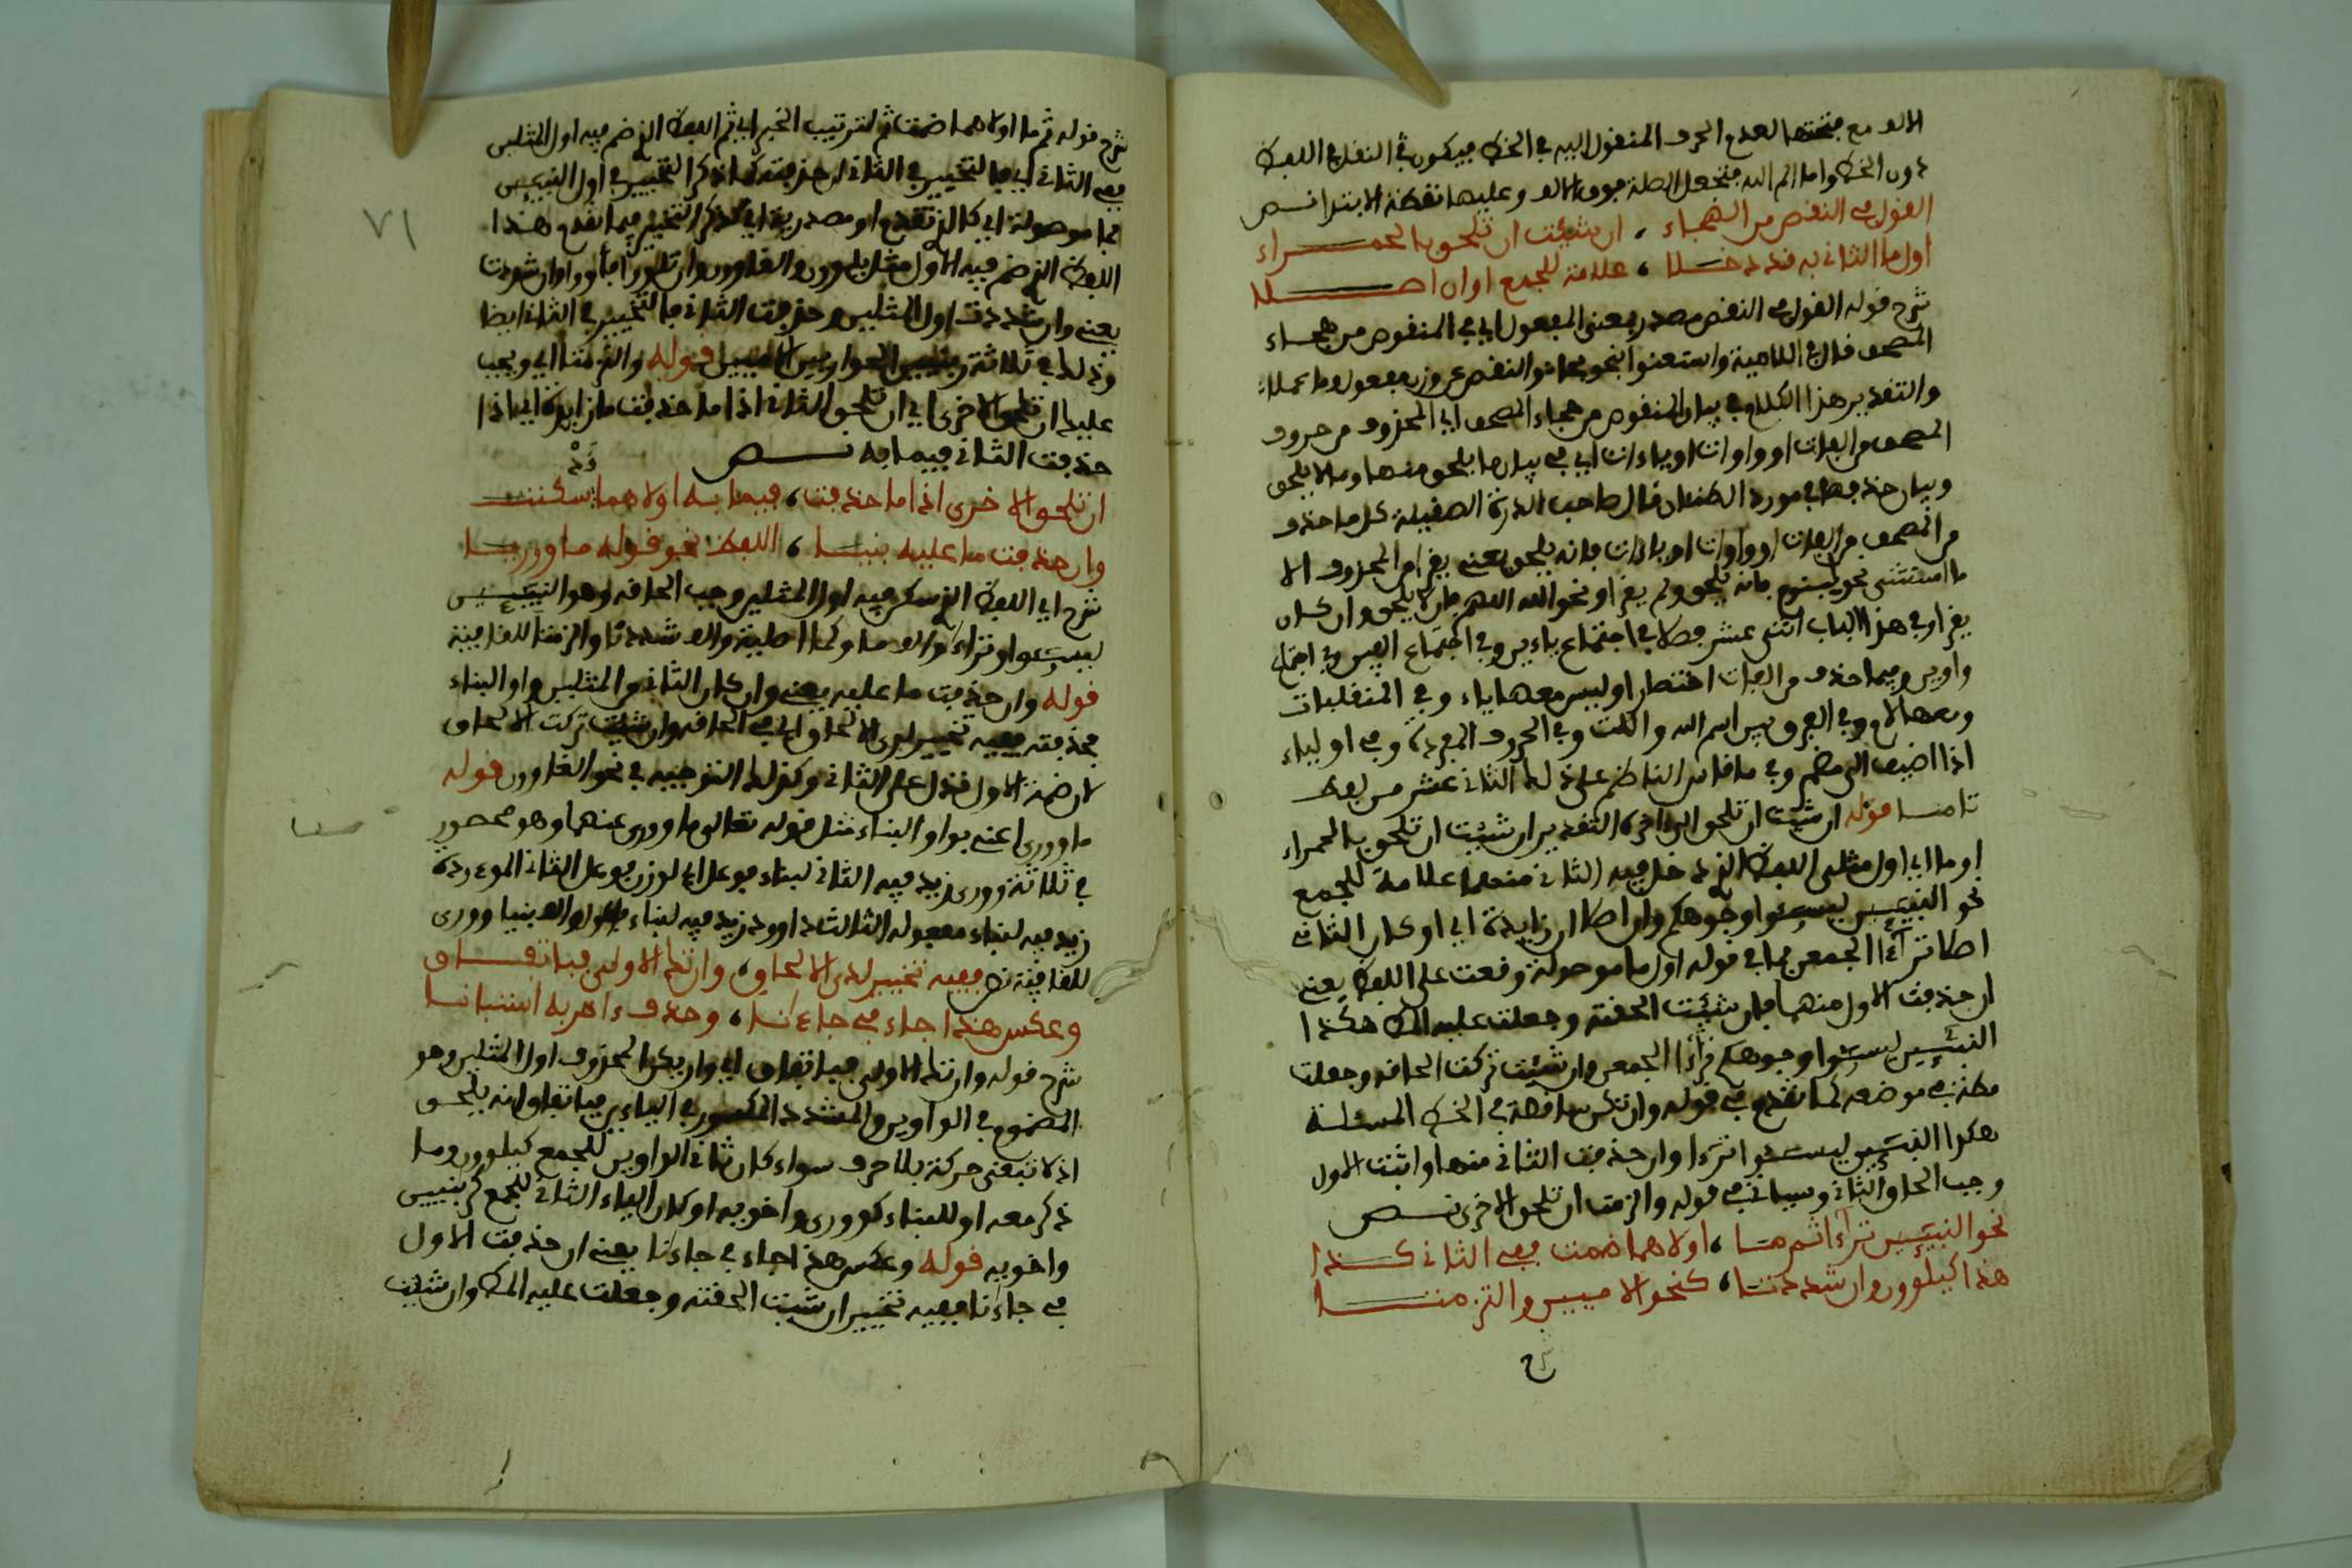 الالف مع فتحتها لعدم الحرف المنقول اليه في الخط فيكون في النقل في اللفظ
دون الخط واما الم الله فتجعل الصلة فوق الالف وعليها نقطة الابتدا نص
القول في النقص من الهجاء ، ان شئت ان تلحق بالحمراء
اول ما الثاني به قد دخلا ، علامة للجمع او ان اصلا
شرح قوله القول في النقص مصدر بمعنى المفعول اي في المنقوص من هجاء
المصحف قال في اللامية واستغنوا بنحو هما هو النقص عن وزن مفعول وما عملا
والتقدير هذا الكلام في بيان المنقوص من هجاء المصحف اي المحذوف من حروف
المصحف من الفات او واوات او ياءات اي في بيان ما يلحق منها وما لا يلحق
وبيان حذفها في مورد الظمئان قال صاحب الدرة الصقيلة كل ما حذف
من المصحف من الفات او واوات او ياءات فانه يلحق يعني يقرا من المحذوف الا
ما استثني نحو فانه يلحق ولم يقرا ونحو الله اللهم فان لا يلحق وان كان
يقرا وفي هذا الباب اثنى عشر فصلا في اجتماع ياءين وفي اجتماع الفين وفي اجتماع
واوين وفيما حذف من الفات اختصارا وليس معها ياء وفي المنقلبات
ومعها لام وفي الفرق بين اسم الله واللت وفي الحروف المفردة وفي اولياء
اذا اضيف الى مضمر وفي ما قاس الناظم على ذلك الثاني عشر من لفظ
تامنا قوله ان شئت ان تلحق الى اخره التقدير ان شئت ان تلحق بالحمراء
او ما اي اول مثلي اللفظ الذي دخل فيه الثاني منهما علامة للجمع
نحو النبيين ليسوءوا وجوهكم وان اصلا ان زايدة اي او كان الثاني
اصلا ترآءا الجمعن فما في قوله اول ما موصولة وقعت على اللفظ يعني
ان حذفت الاول منهما فان شئت الحقته وجعلت عليه المط هكذا
النبيين ليسوءوا وجوهكم ترآءا الجمعن وان شئت تركت الحاقه وجعلت
مطة في موضعه كما تقدم في قوله وان تكن ساقطة في الخط المسئلة
هكذا النبيين ليسوءوا ترءا وان حذفت الثاني منها واثبت الاول
وجب الحاق الثاني وسياتي في قوله والزمت ان تلحق الاخرى نص
نحو النبيين ترآءا ثم ما ، اولاهما ضمت ففي الثاني كذا
هذا كيلوون وان شددتا ، كنحو الاميين والتزمتا
شرح
٧١
شرح قوله ثم ما اولاهما ضمت ثم لترتيب الخبر اي ثم اللفظ الذي ضم فيه اول المثلين
ففي الثاني اي فالتخيير في الثاني ان حذفته كما ذكر التخيير في اول النبيين
فما موصولة اي كالذي تقدم او مصدرية اي كذكر التخيير فيما تقدم هنذا
اللفظ الذي ضم فيه الاول مثل يلوون والغاوون وان تلوو فأوا وان شددت
يعني وان شددت اول المثلين وحذفت الثاني فالتخيير في الثاني ايضا
وذلك في ثلاثة ربنيين الحوارين الاميين قوله والتزمت اي ويجب
عليك ان تلحق الاخرى اي ان تلحق الثاني اذا ما حذفت ما زايدة اي اذا
حذفت الثاني فيما به نص
ان تلحق الاخرى اذا ما حذفت ، فيما به اولاهما سكنت
وان حذفت ما عليه بنيا ، اللفظ نحو قوله ما ووريا
شرح اي اللفظ الذي سكن فيه اول المثلين وجب الحاقه وهو النبيين
ليسوءوا وتراءا والف ما وكما اطلية والف شددتا والزمتا للقافية
قوله وان حذفت ما عليه يعني وان كان الثاني من المثلين واو البناء
فحذفته ففيه تخيير لدى الالحاق اي في الحاقه وان شئت تركت الالحاق
لان ضمة الاول تدل على الثاني وكذلك التوجيه في نحو الغاوون قوله
ما ووريا عنى بواو البناء مثل قوله تعالى ما ووري عنهما وهو محصور
في ثلاثة ووري زيد فيه الثاني لبناء فوعل اي لوزن فوعل الثاني الموءودة
زيد فيه لبناء مفعولة الثالث داوود زيد فيه لبناء والف بنيا ووري
للقافية نص ففيه تخيير لدى الالحاق ، وان تك الاولى فباتفاق
وعكس هذا جاء في جاءانا ، وحذف ءاخر به استبانا
شرح قوله وان تك الاولى فباتفاق اي وان يكن المحذوف اول المثلين وهو
المضموم في الواوين والمشدد المكسور في الياءين فباتفاق انه يلحق
اذ لا تبقى حركة بلا حرف سواء كان ثاني الواوين للجمع كيلوون وما
ذكر معه او للبناء كووري واخويه او كان الياء الثاني للجمع كربنيين
واخويه قوله وعكس هذا جاء في جاءنا يعني ان حذفت الاول
في جاءنا ففيه تخيير ان شئت الحقته وجعلت عليه المط وان شئت